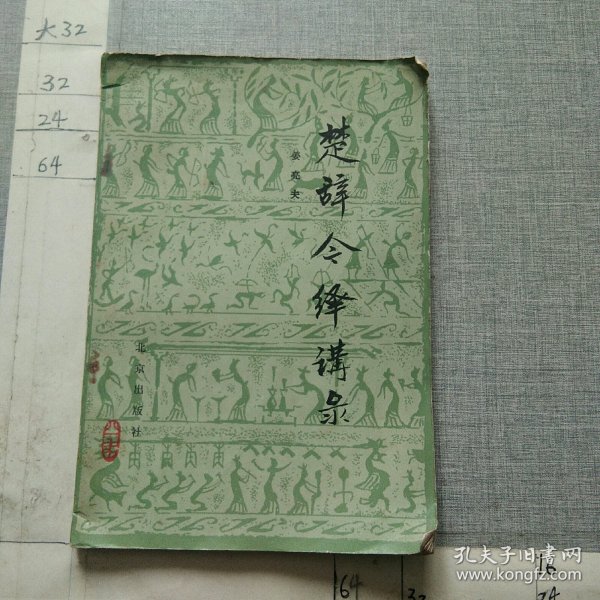 大32
32
24
64
楚辞今绎講录
姜亮夫
北京出版社
164
32
16
24
孔夫子旧書网
www.kongfz.com